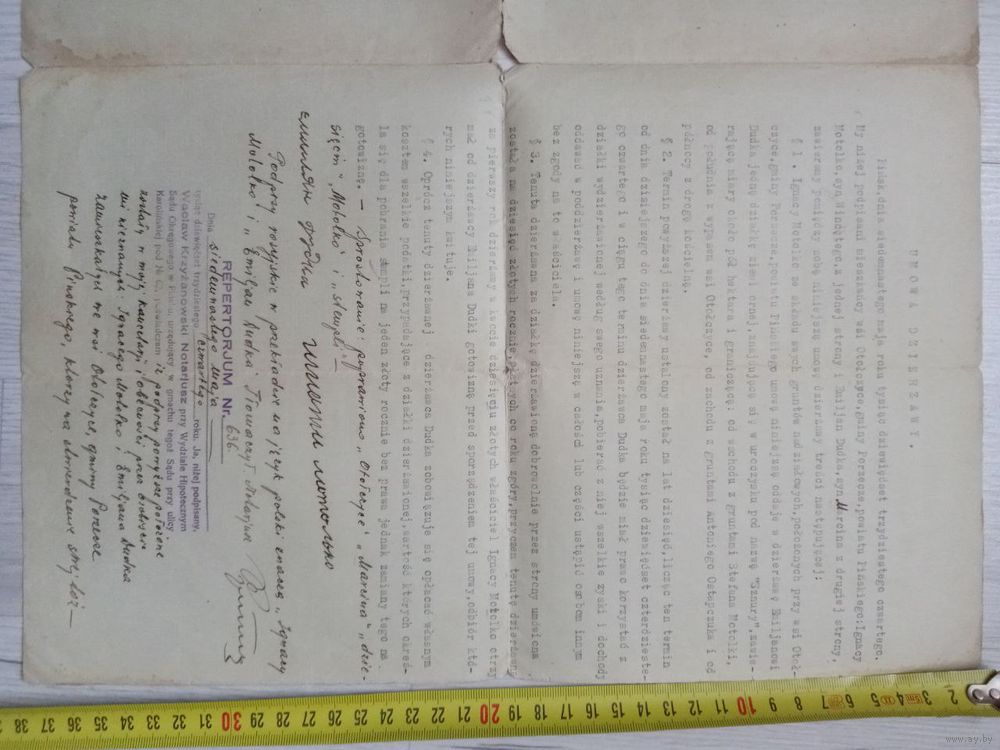 UMOWA DZIERŻAWY.
Pińsk, dnia siedemnastego maja roku tysiąc dziewięćset trzydziestego czwartego.
My niżej podpisani mieszkańcy wsi Otołczyce, gminy Porzecze, powiatu Pińskiego: Ignacy
Motolko, syn Wincentego, z jednej strony i Emiljan Dudka, syn Mirona z drugiej strony,
zawieramy pomiędzy sobą niniejszą umowę dzierżawy treści następującej:
§ 1. Ignacy Motolko ze składu swych gruntów nadziałowych, położonych przy wsi Otoł-
czyce, gminy Porzecze, powiatu Pińskiego umową niniejszą oddaje w dzierżawę Emiljanowi
Dudka jedną działkę ziemi ornej, znajdującą się w uroczysku pod nazwą "Sznury", zawie-
rającą miary około pół hektara i graniczącą: od wschodu z gruntami Stefana Motolki,
od południa z wygonem wsi Otołczyce, od zachodu z gruntami Antoniego Ostapczuka i od
północy z drogą kościelną.
§ 2. Termin powyższej dzierżawy ustalony został na lat dziesięć, licząc ten termin
od dnia dzisiejszego do dnia siedemnastego maja roku tysiąc dziewięćset czterdzieste-
go czwartego i w ciągu tego terminu dzierżawca Dudka będzie miał prawo korzystać z
działki wydzierżawionej według swego uznania, pobierać z niej wszelkie zyski i dochody
oddawać w poddzierżawę i umowę niniejszą w całości lub części ustąpić osobom innym
bez zgody na to właściciela.
§ 3. Tenuta dzierżawna za działkę dzierżawioną dobrowolnie przez strony umówiona
została na dziesięć złotych rocznie, płatnych co roku zgóry, przyczem tenutę dzierżawną
za pierwszy rok dzierżawy w kwocie dziesięciu złotych właściciel Ignacy Motolko otrzy
mał od dzierżawcy Emiljana Dudki gotowizną przed sporządzeniem tej umowy, odbiór któ-
rych niniejszym kwituje.
§ 4. Oprócz tenuty dzierżawnej dzierżawca Dudka zobowiązuje się opłacać własnym
kosztem wszelkie podatki, przypadające z działki dzierżawionej, wartość których określa
la się dla pobrania stempli na jeden złoty rocznie bez prawa jednak zamiany tego na
gotowiznę. — Sprostowanie: poprawiono "Otołczyce" "Marcina" "dzie-
sięciu" "Motolko" i "stempli"
Игнаты Мотолько
Емильян Дудка
Podpisy rosyjskie w przekładzie na język polski znaczą "Ignacy
Motolko" i "Emiljan Dudka" Tłomaczył Notarjusz
REPERTORJUM Nr. 636
Dnia siedemnastego maja
tysiąc dziewięćset trzydziestego czwartego roku. Ja, niżej podpisany,
Wacław Krzyżanowski Notarjusz przy Wydziale Hipotecznym
Sądu Okręgowego w Pińsku, urzędujący w gmachu tegoż Sądu przy ulicy
pod № 62, poświadczam, iż podpisy powyższe położone
zostały w mojej kancelarji i obecności przez osobiście
mi nieznanych: Ignacego Motolko i Emiljana Dudka
zamieszkałych we wsi Otołczyce, gminy Porzecze
powiatu Pińskiego, którzy na stwierdzenie swojej toż—